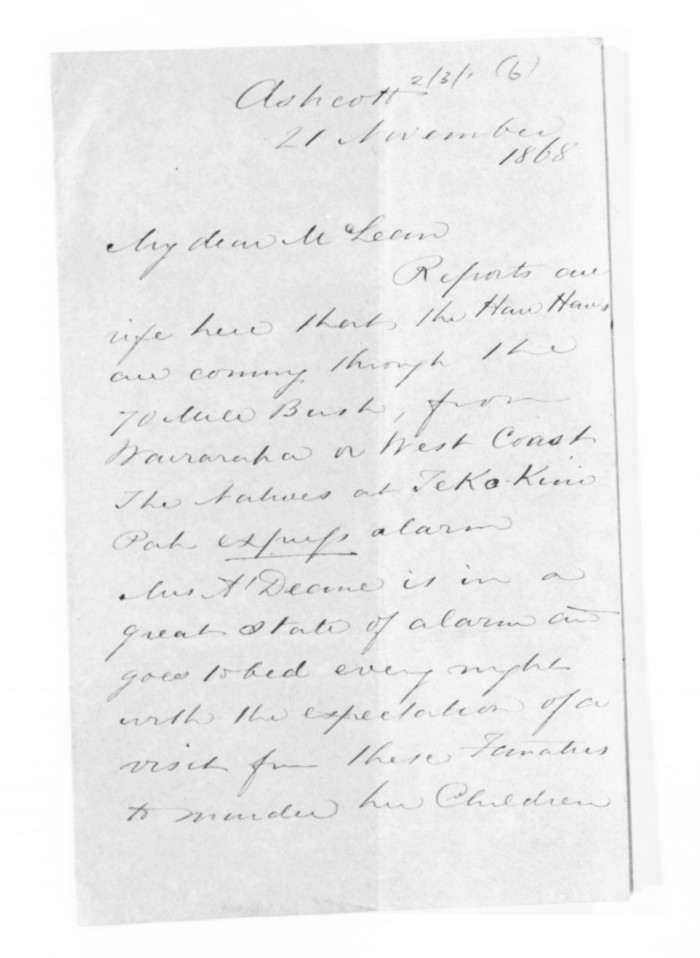 2/3/1 (6)
Ashcott
21 November
1868
My dear McLean
Reports are
rife here that the Hau Haus
are coming through the
70 Mile Bush, from
Wairarapa or West Coast
The Natives at TeKo-Kini
Pah express alarm
Mrs A'Deane is in a
great state of alarm and
goes to bed every night
with the expectation of a
visit from these Fanatics
to murder her Children